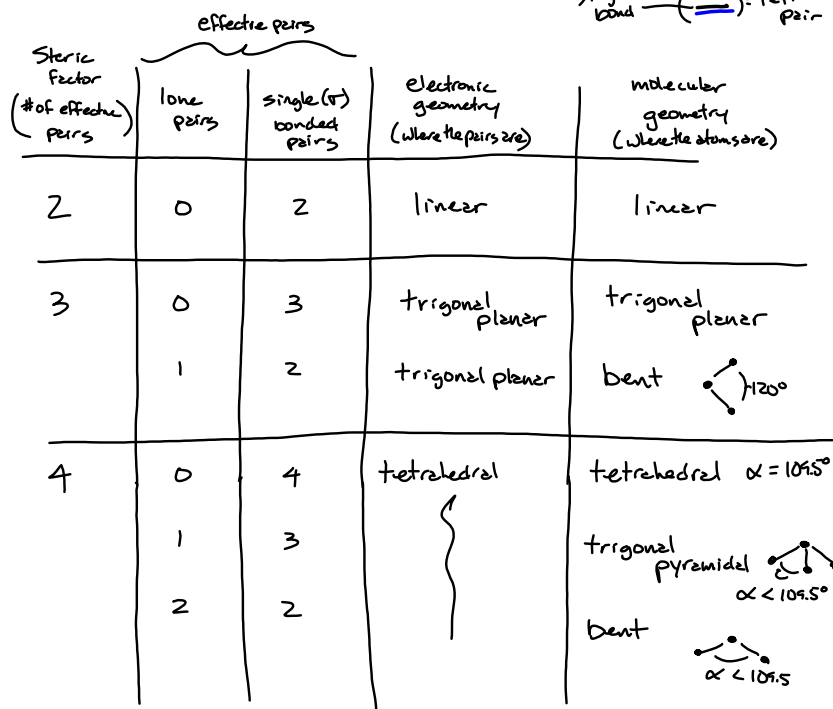 bond
pair
effective pairs
Steric
factor
(# of effective
pairs)
lone
pairs
single (σ)
bonded
pairs
electronic
geometry
(where the pairs are)
molecular
geometry
(where the atoms are)
2 0 2 linear linear
3 0 3 trigonal planar trigonal planar
1 2 trigonal planar bent ~120°
4 0 4 tetrahedral tetrahedral α = 109.5°
1 3 trigonal
pyramidal
α < 109.5°
2 2 bent
α < 109.5